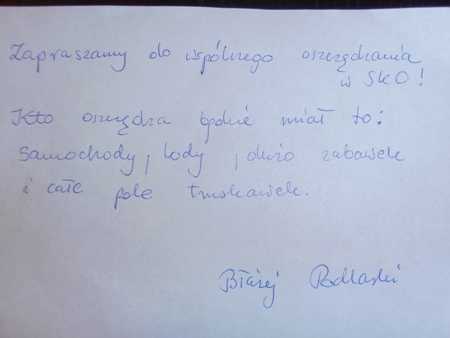 Zapraszamy do wspólnego oszczędzania
w SKO!
Kto oszczędza będzie miał to:
samochody, lody, dużo zabawek
i całe pole truskawek.
Błażej Podlaski